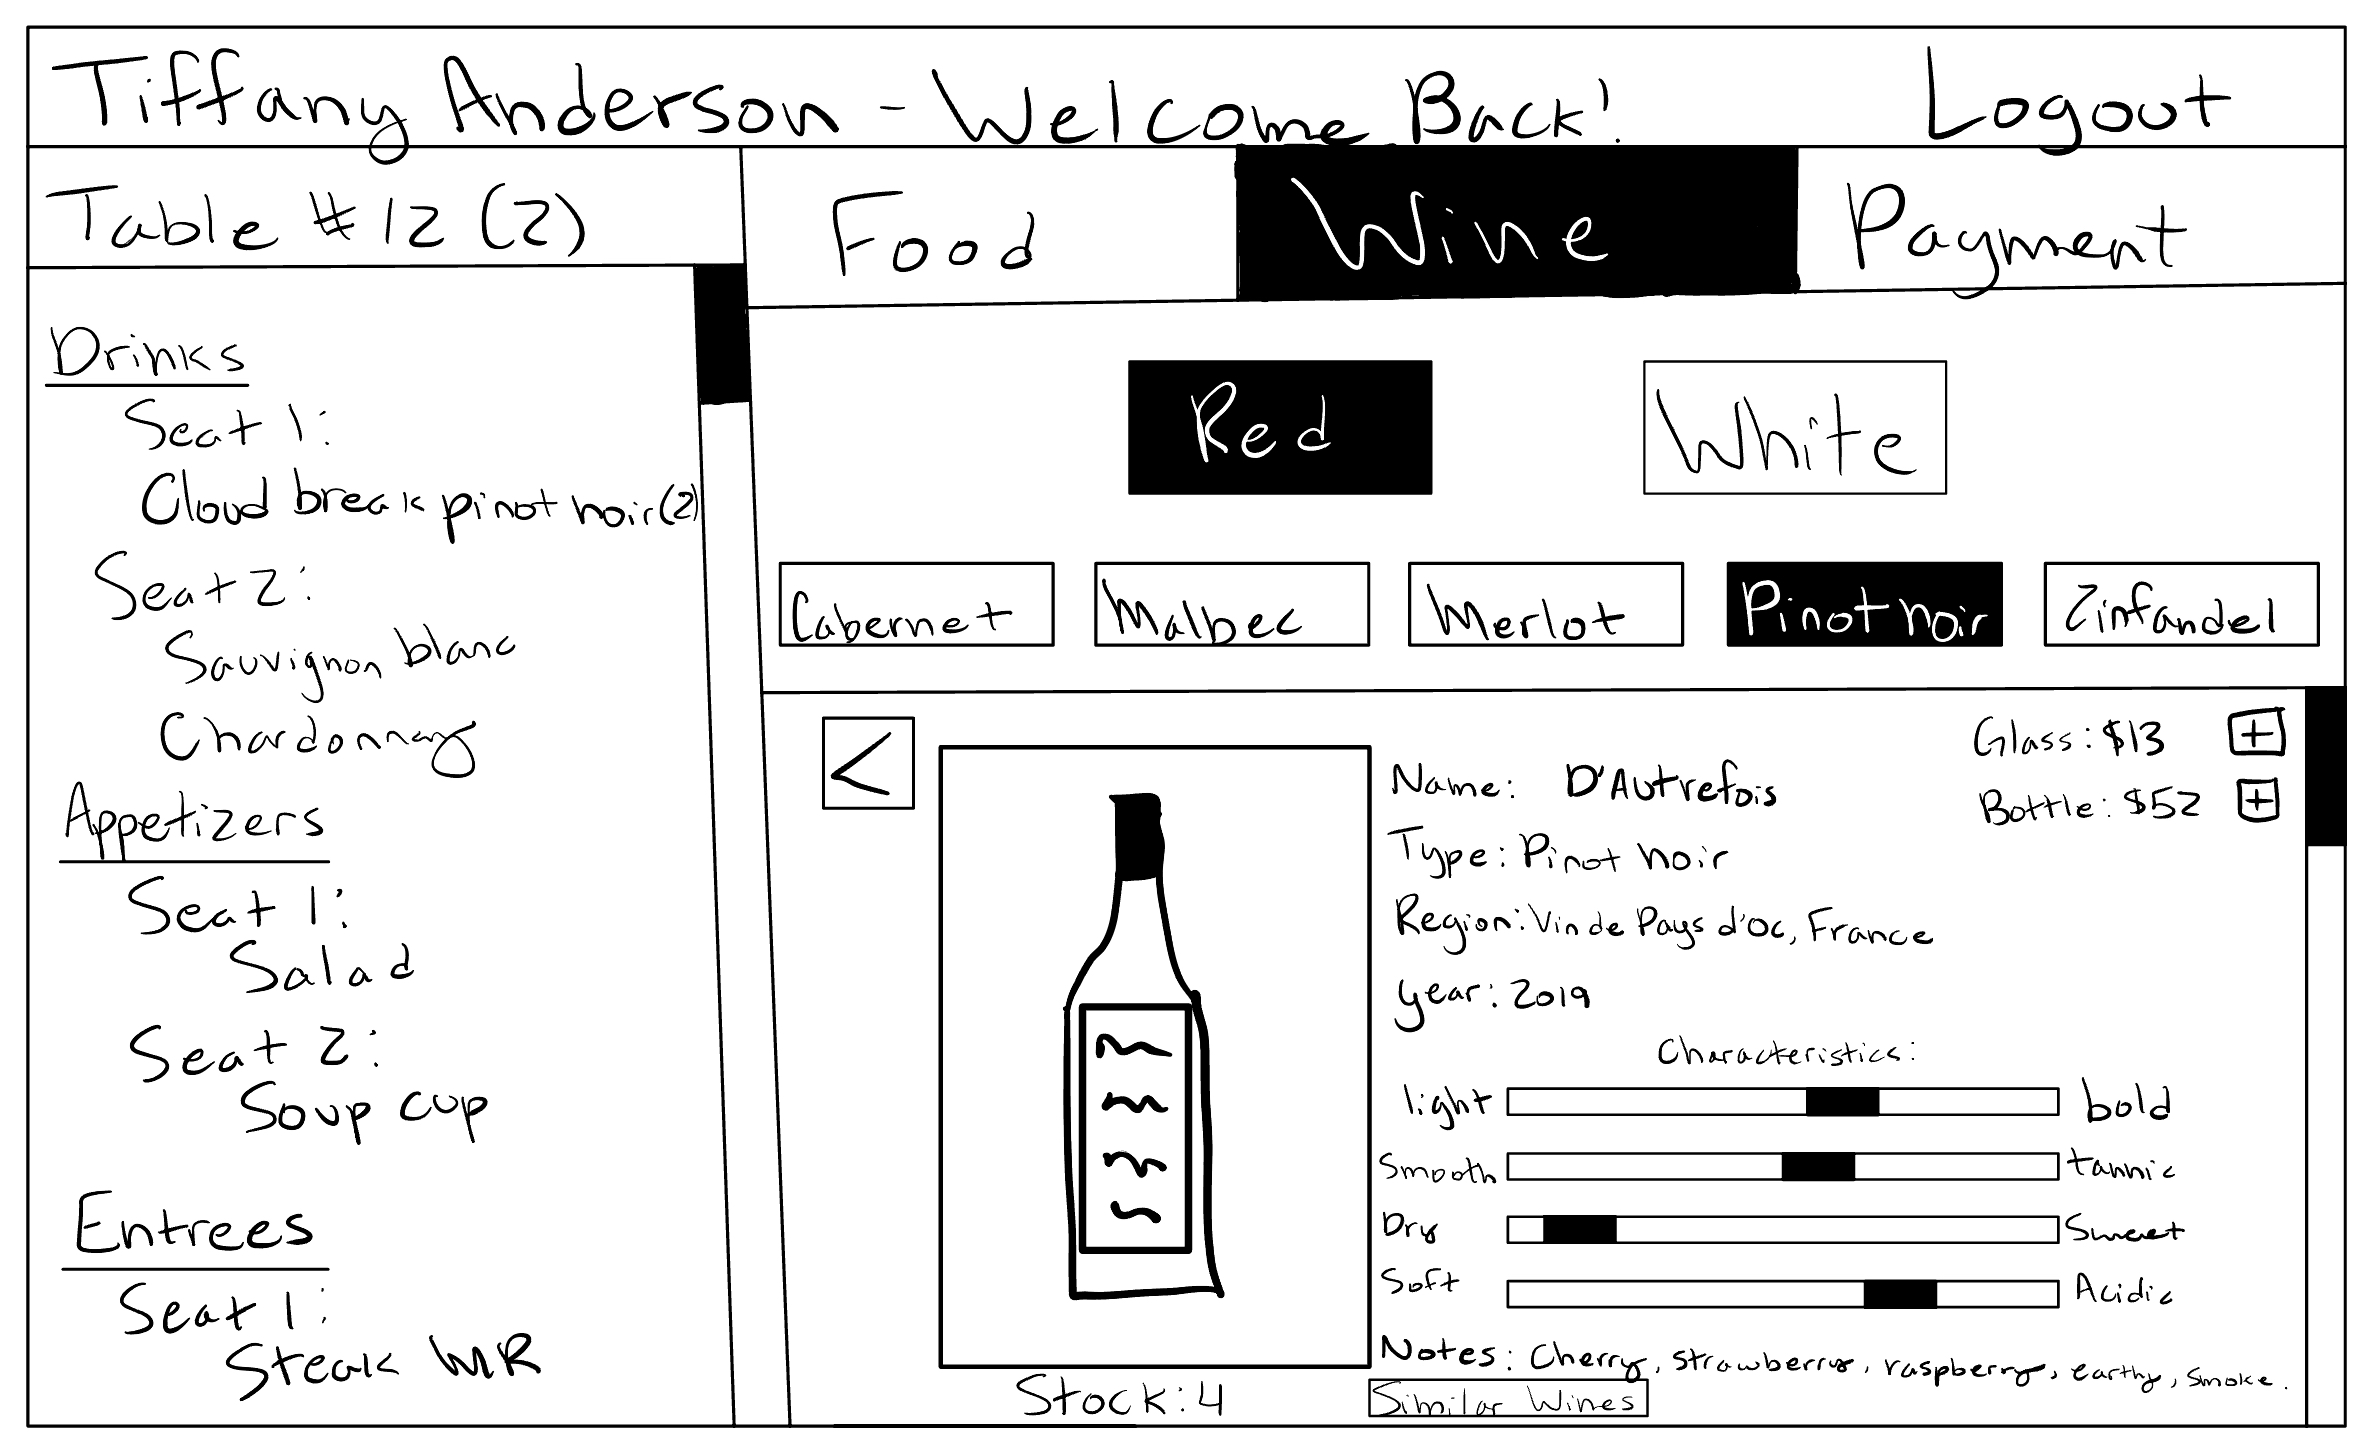 Tiffany Anderson - Welcome Back! Logout
Table #12 (2)
Food Wine Payment
Drinks
Seat 1:
Cloud break pinot noir (2)
Seat 2:
Sauvignon blanc
Chardonnay
Appetizers
Seat 1:
Salad
Seat 2:
Soup cup
Entrees
Seat 1:
Steak MR
Red White
Cabernet Malbec Merlot Pinot noir Zinfandel
<
Glass: $13 +
Bottle: $52 +
Name: D'Autrefois
Type: Pinot noir
Region: Vin de Pays d'Oc, France
year: 2019
Characteristics:
light bold
Smooth tannic
Dry Sweet
Soft Acidic
Notes: Cherry, strawberry, raspberry, earthy, smoke.
Stock: 4
Similar Wines